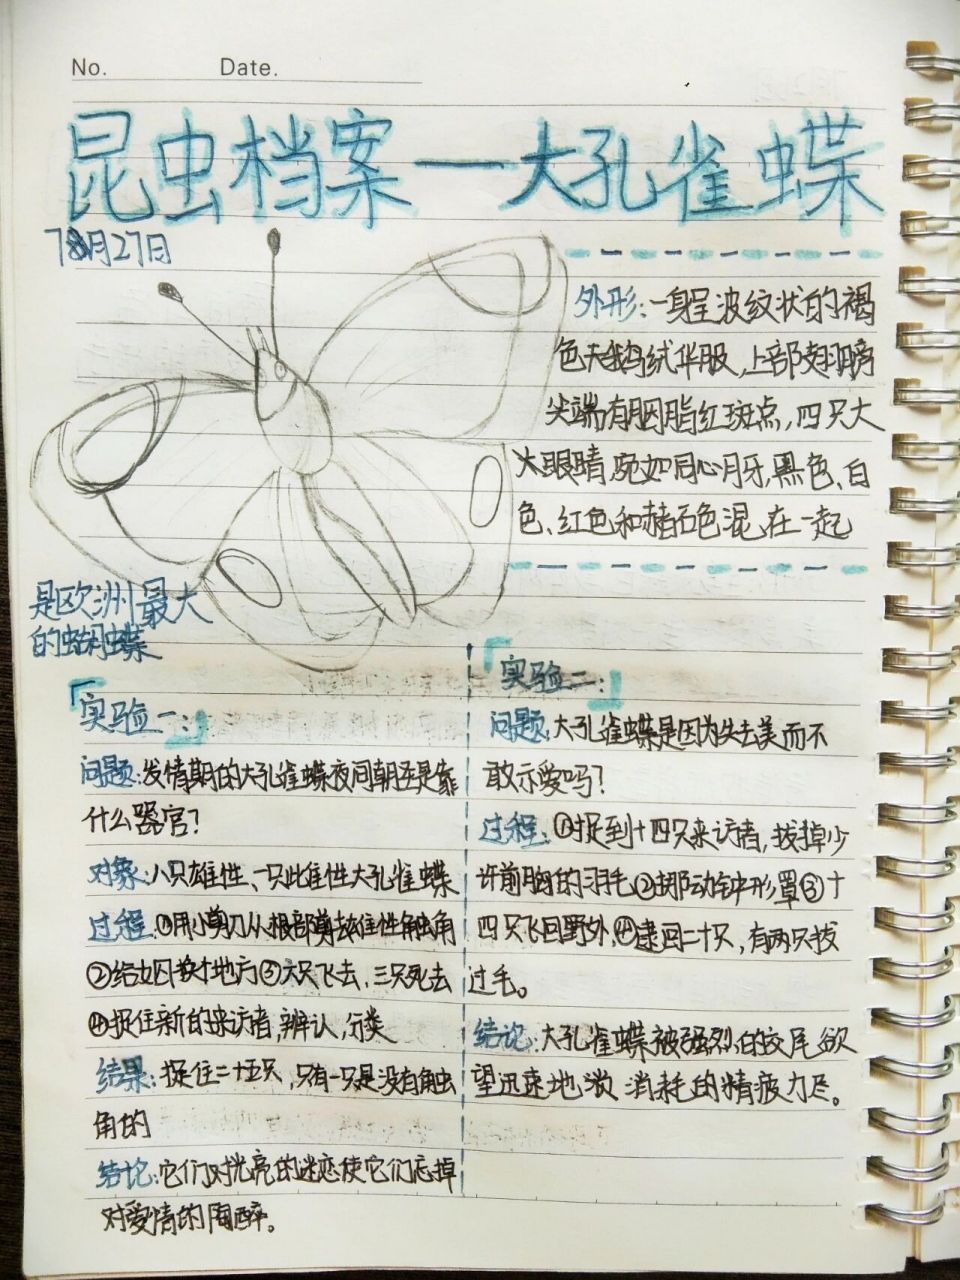 No.    Date.
昆虫档案—大孔雀蝶
8月27日
外形:一身呈波纹状的褐
色天鹅绒华服,上部翅膀
尖端有胭脂红斑点,四只大
大眼睛,宛如同心月牙,黑色、白
色、红色和赭石色混在一起
是欧洲最大
的蝴蝶
「实验一:」
问题:发情期的大孔雀蝶夜间朝圣是靠
什么器官?
对象:八只雄性、一只雌性大孔雀蝶
过程:①用小剪刀从根部剪去雄性触角
②给女囚换个地方③六只飞去,三只死去
④捉住新的来访者,辨认,分类
结果:捉住二十五只,只有一只是没有触
角的
结论:它们对光亮的迷恋使它们忘掉
对爱情的陶醉。
「实验二:」
问题:大孔雀蝶是因为失去美而不
敢示爱吗?
过程:①捉到十四只来访者,拔掉少
许前胸的羽毛②挪动钟形罩③十
四只飞回野外④逮回二十只,有两只拔
过毛。
结论:大孔雀蝶被强烈的交尾欲
望迅速地 消耗的精疲力尽。